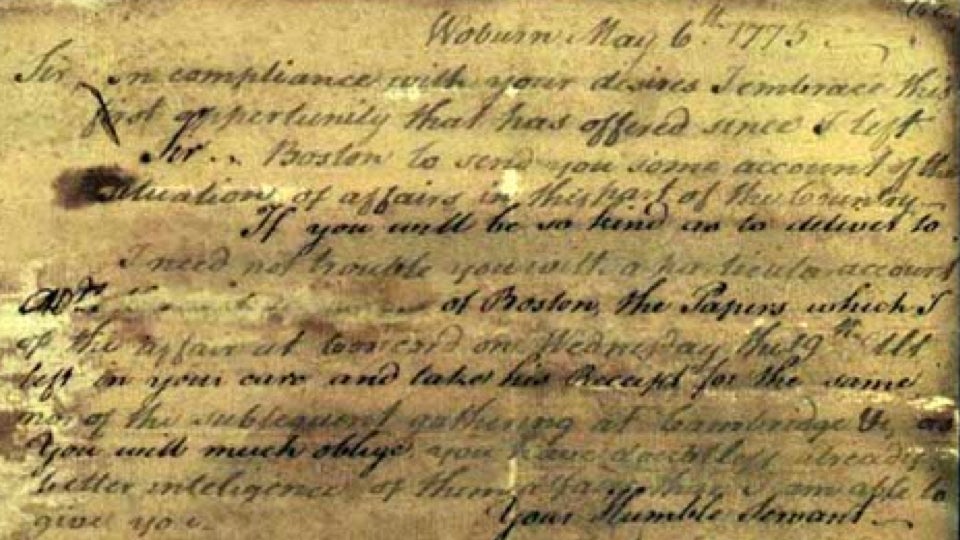 Woburn May 6th. 1775.
Sir In compliance with your desires I embrace this
first oppertunity that has offered since I left
Sir.. Boston to send you some account of the
situation of affairs in this part of the Country.
If you will be so kind as to deliver to
I need not trouble you with a particular account
of Boston, the Papers which I
of the affair at Concord on Wednesday the 19th Ult
left in your care and take his Receipt for the same
nor of the subsequent gathering at Cambridge &c, as
You will much oblige, you have doubtless already
better inteligence of them affairs than I am able to
Your Humble Servant
give you.